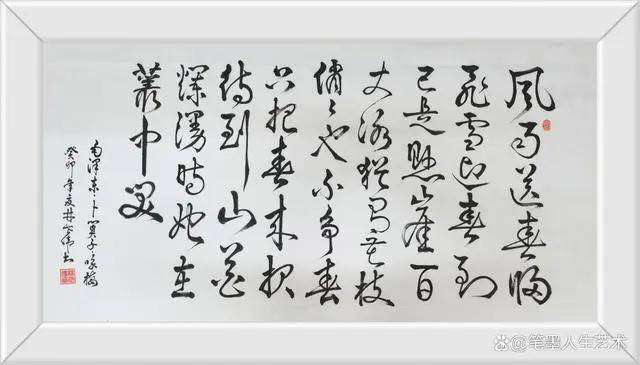 風雨送春歸
飛雪迎春到
已是懸崖百
丈冰猶有花枝
俏〻也不争春
只把春來报
待到山花
爛漫時她在
叢中笑
毛澤東卜算子咏梅
癸卯年夏林书
@笔墨人生艺术